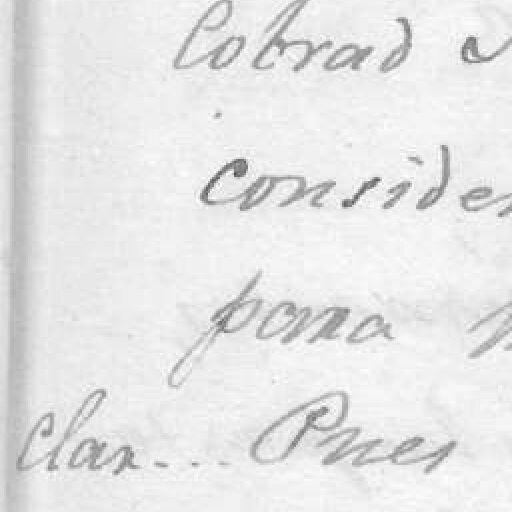 Cobrad
consider
para
clar... Pues